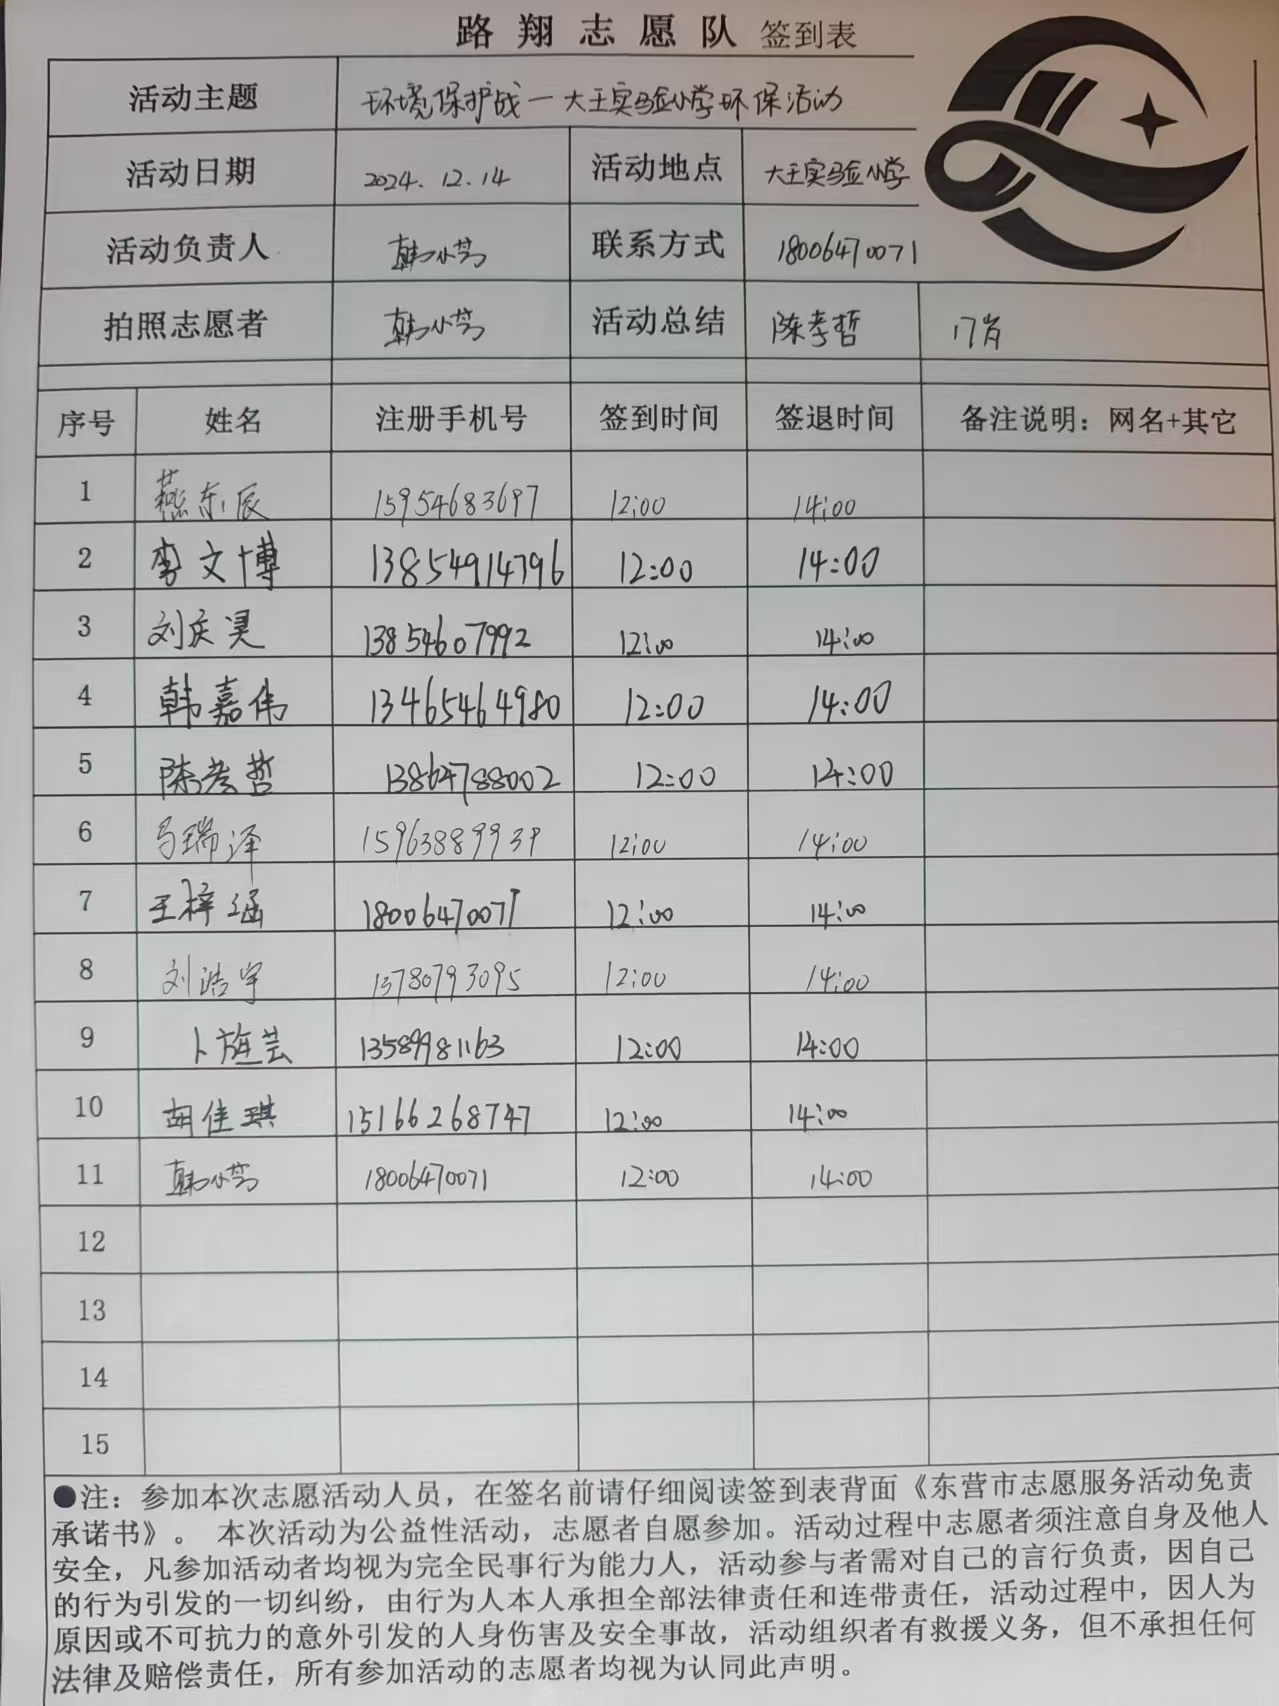 路翔志愿队 签到表
活动主题 环境保护战一大王实验小学环保活动
活动日期 2024.12.14 活动地点 大王实验小学
活动负责人 韩小芳 联系方式 18006470071
拍照志愿者 韩小芳 活动总结 陈孝哲 17岁
序号 姓名 注册手机号 签到时间 签退时间 备注说明：网名+其它
1 燕东辰 15954683697 12:00 14:00
2 李文博 13854914796 12:00 14:00
3 刘庆昊 13854607992 12:00 14:00
4 韩嘉伟 13465464980 12:00 14:00
5 陈孝哲 13864788002 12:00 14:00
6 马瑞泽 15963889939 12:00 14:00
7 王梓涵 18006470071 12:00 14:00
8 刘浩宇 13780793095 12:00 14:00
9 卜旌芸 13589981163 12:00 14:00
10 胡佳琪 15166268747 12:00 14:00
11 韩小芳 18006470071 12:00 14:00
12
13
14
15
●注：参加本次志愿活动人员，在签名前请仔细阅读签到表背面《东营市志愿服务活动免责
承诺书》。 本次活动为公益性活动，志愿者自愿参加。活动过程中志愿者须注意自身及他人
安全，凡参加活动者均视为完全民事行为能力人，活动参与者需对自己的言行负责，因自己
的行为引发的一切纠纷，由行为人本人承担全部法律责任和连带责任，活动过程中，因人为
原因或不可抗力的意外引发的人身伤害及安全事故，活动组织者有救援义务，但不承担任何
法律及赔偿责任，所有参加活动的志愿者均视为认同此声明。